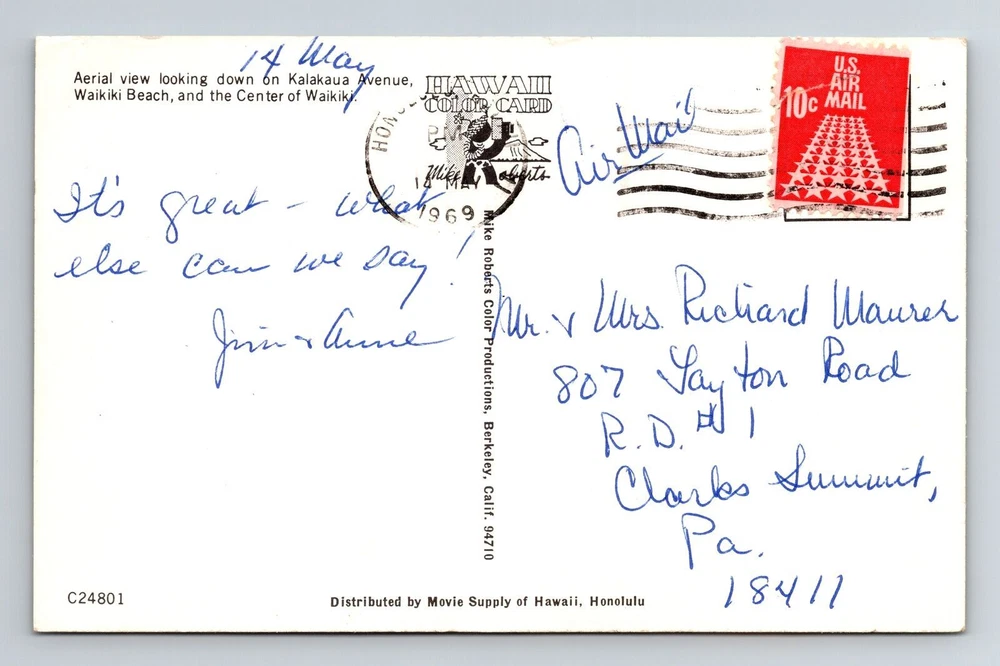 14 May
Aerial view looking down on Kalakaua Avenue,
Waikiki Beach, and the Center of Waikiki.
HAWAII
COLOR CARD
Mike Roberts
PM
14 MAY
1969
Air Mail
U.S.
AIR
MAIL
10c
It's great – what
else can we say!
Jim & Anne
Mike Roberts Color Productions, Berkeley, Calif. 94710
Mr. & Mrs. Richard Maurer
807 Layton Road
R.D. #1
Clarks Summit,
Pa.
18411
C24801
Distributed by Movie Supply of Hawaii, Honolulu